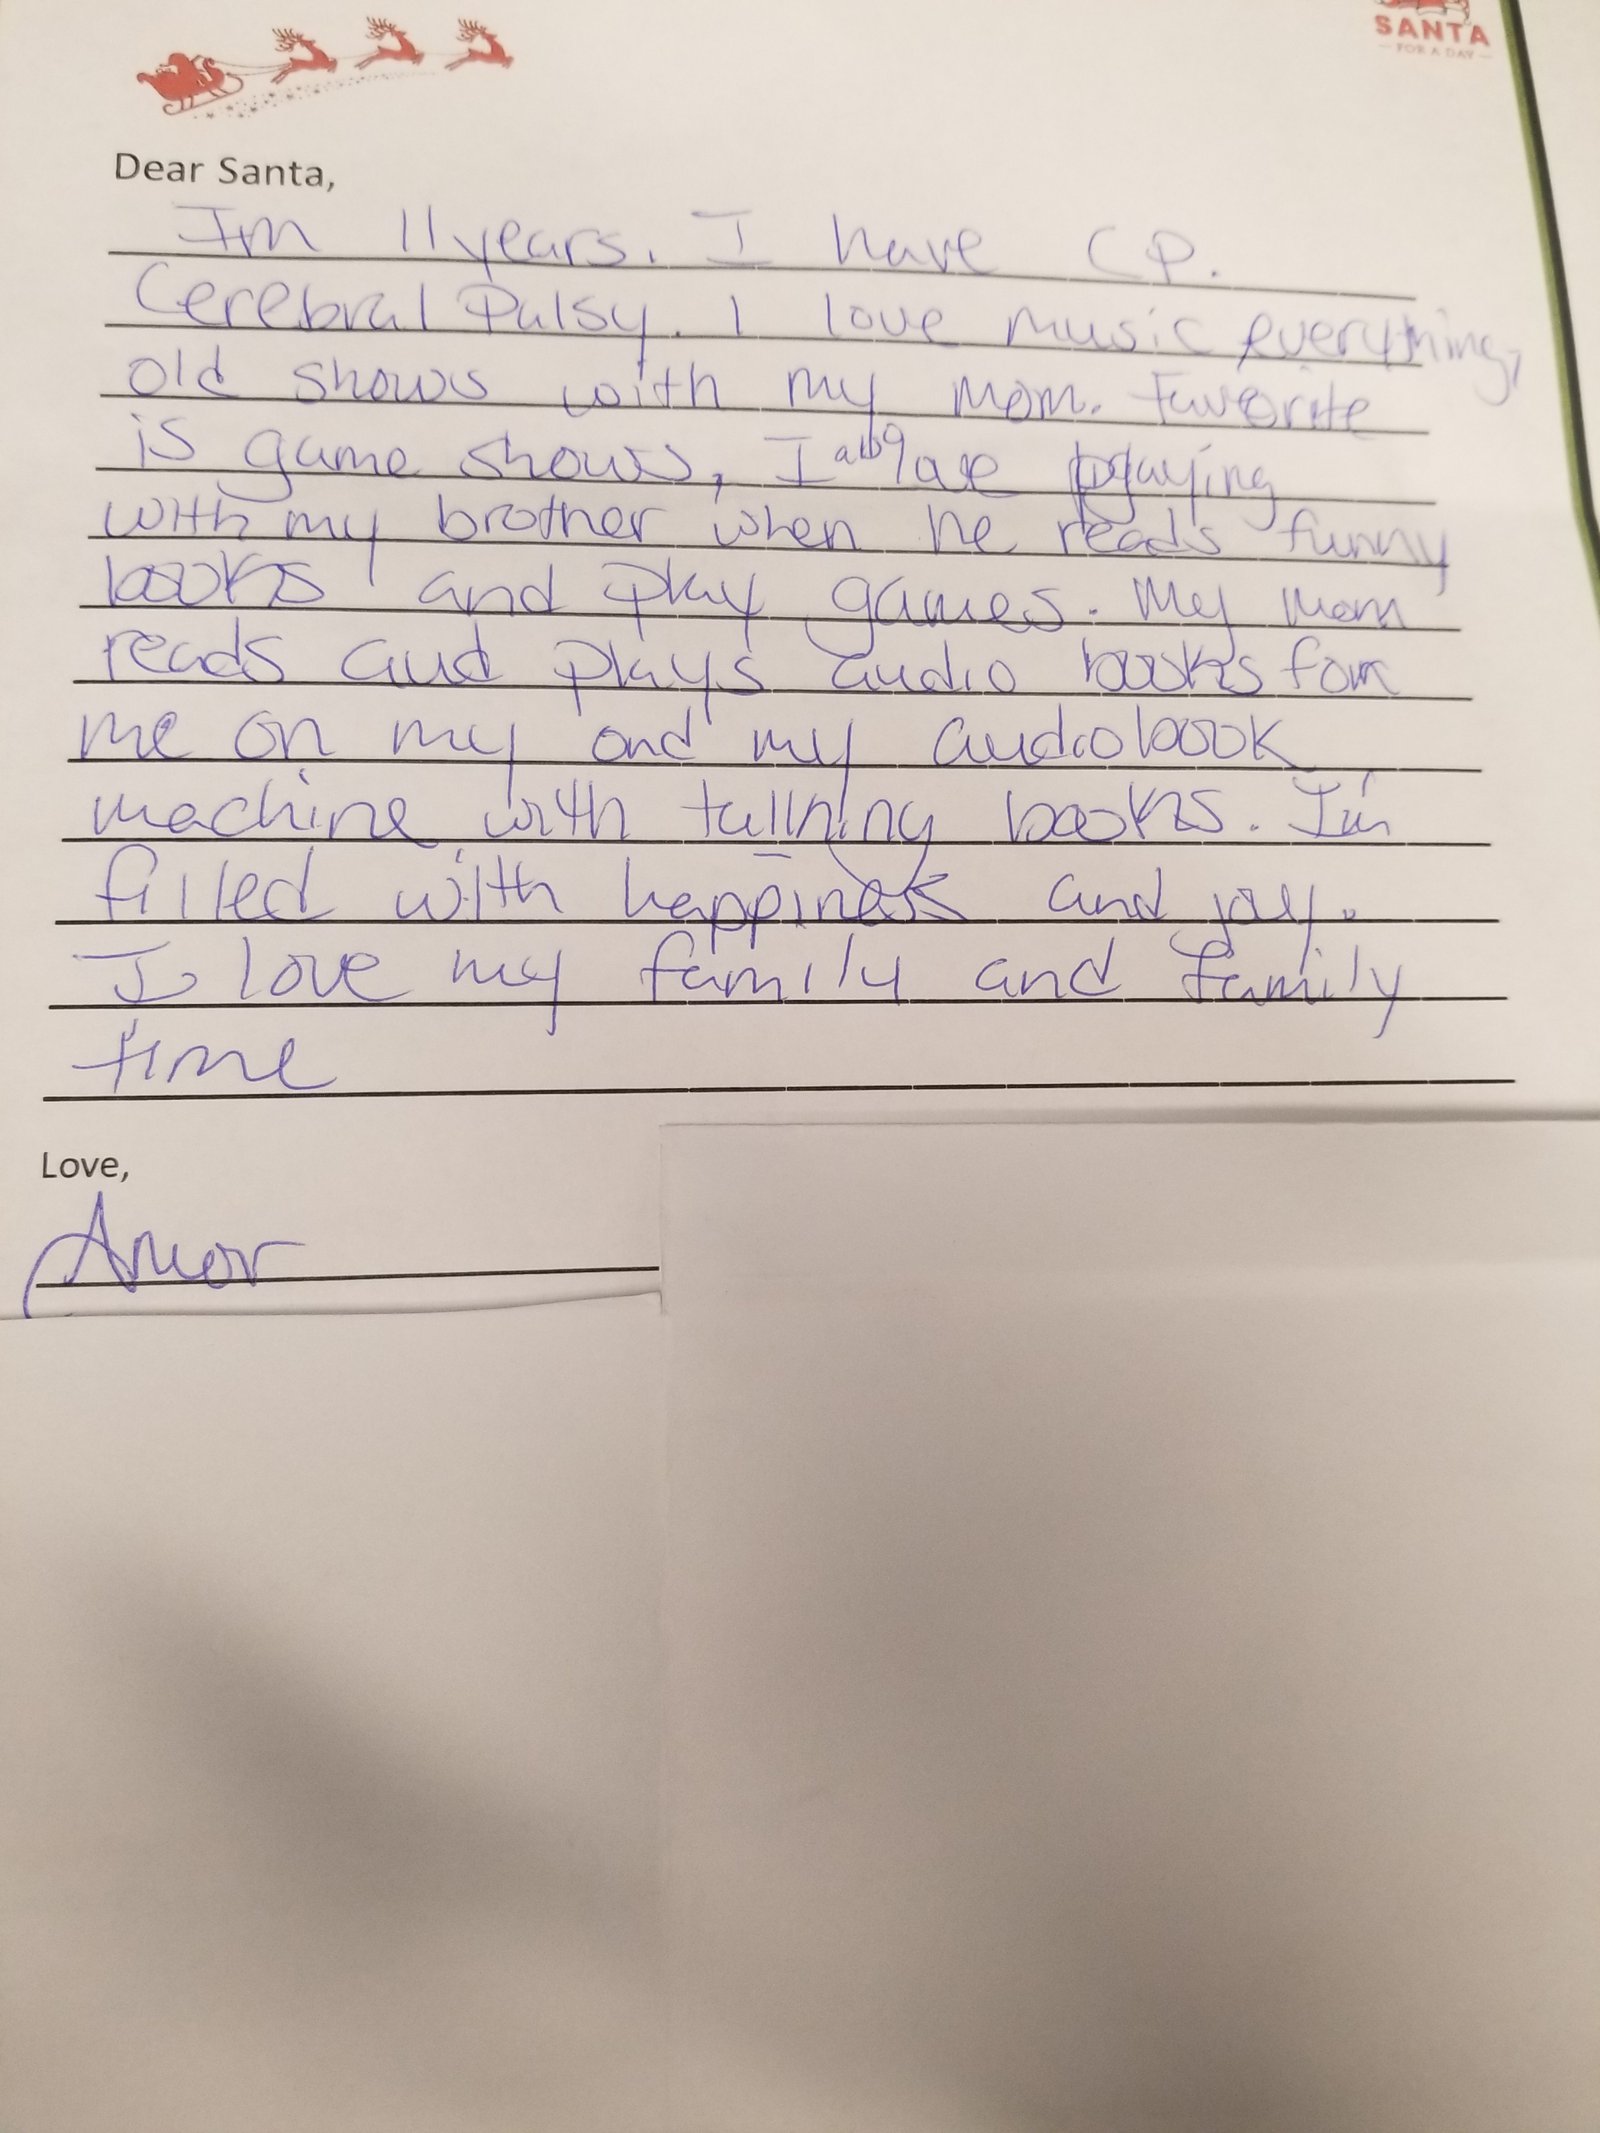 SANTA
— FOR A DAY —
Dear Santa,
Im 11 years. I have CP.
Cerebral Palsy. I love music everything,
old shows with my mom. Favorite
is game shows, I also love playing
with my brother when he reads funny
books and play games. My mom
reads and plays audio books for
me on my and my audiobook
machine with talking books. I'm
filled with happiness and joy.
I love my family and family
time
Love,
Amor